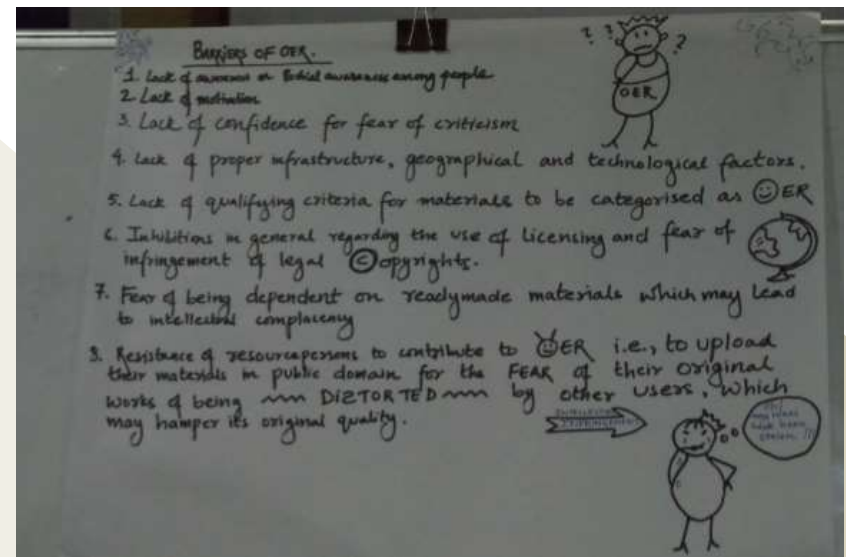 BARRIERS OF OER.
? ? ?
?
OER
1. Lack of awareness or Partial awareness among people
2. Lack of motivation
3. Lack of confidence for fear of criticism
4. Lack of proper infrastructure, geographical and technological factors.
5. Lack of qualifying criteria for materials to be categorised as OER
6. Inhibitions in general regarding the use of licensing and fear of
infringement of legal ©opyrights.
7. Fear of being dependent on readymade materials which may lead
to intellectual complacency
8. Resistance of resourcepersons to contribute to OER i.e., to upload
their materials in public domain for the FEAR of their original
works of being DISTORTED by other users, which
may hamper its original quality.
INTELLECTUAL
INFRINGEMENT
have been
stolen !!